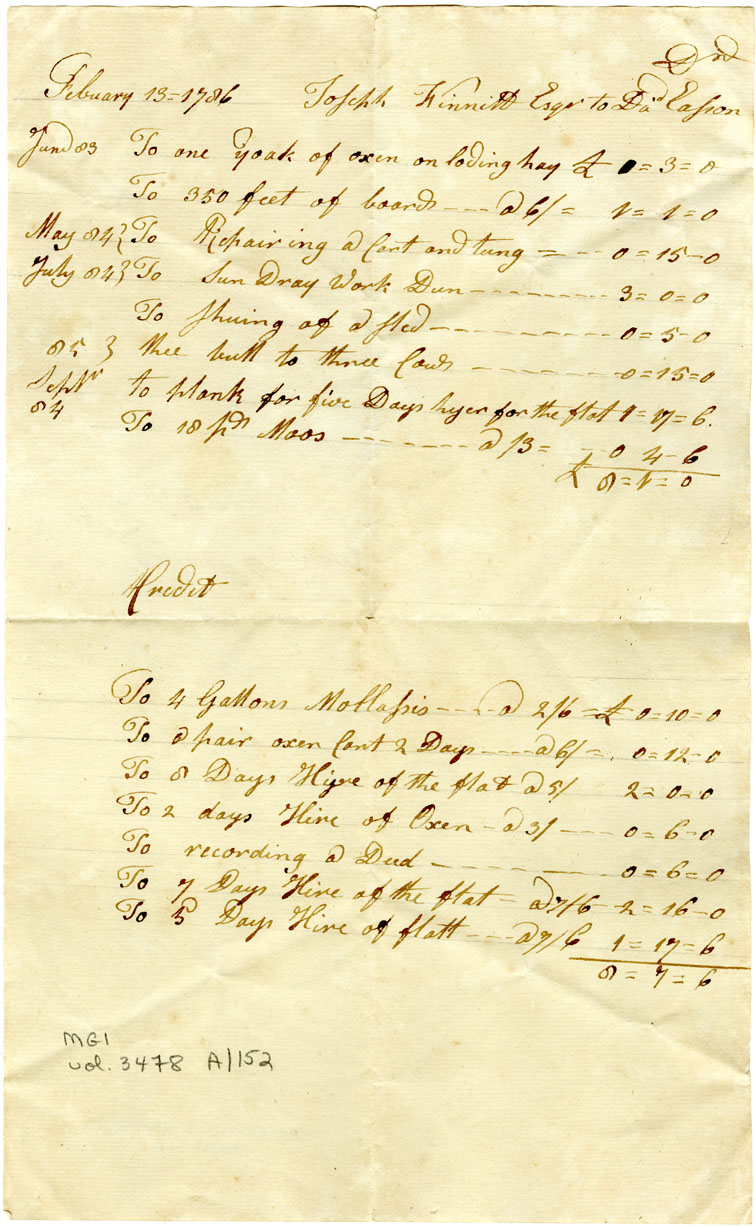 Drd
Febuary 13=1786 Joseph Finnitt Esqr to Dad Easson
June 83 To one yoak of oxen on loding hay £ 0=3=0
To 350 feet of boards ---- a 6/= 1=1=0
May 84 } To Repairing a Cart and tung = -- 0=15-0
July 84 } To Sun Dray Work Dun --------- 3=0=0
To Shuing of a Sled --------- 0=5-0
85 } thee bull to three Cows ------- 0=15=0
Septr to plank for five Days hyer for the flat 1=17=6.
84
To 18 pds Moos --------- a /3= - 0 4-6
£ 8=1=0
Credit
To 4 Gallons Mollassis ---- a 2/6 = £ 0=10=0
To a pair oxen Cart 2 Days ---- a 6/=. 0=12-0
To 8 Days Hyre of the flat a 5/ 2=0=0
To 2 days Hire of Oxen - a 3/ --- 0=6-0
To recording a Deed --------- 0=6=0
To 7 Days Hire of the flat = a 7/6 - 2=16-0
To 5 Days Hire of flatt --- a 7/6 1=17=6
8=7=6
MG1
vol. 3478 A/152